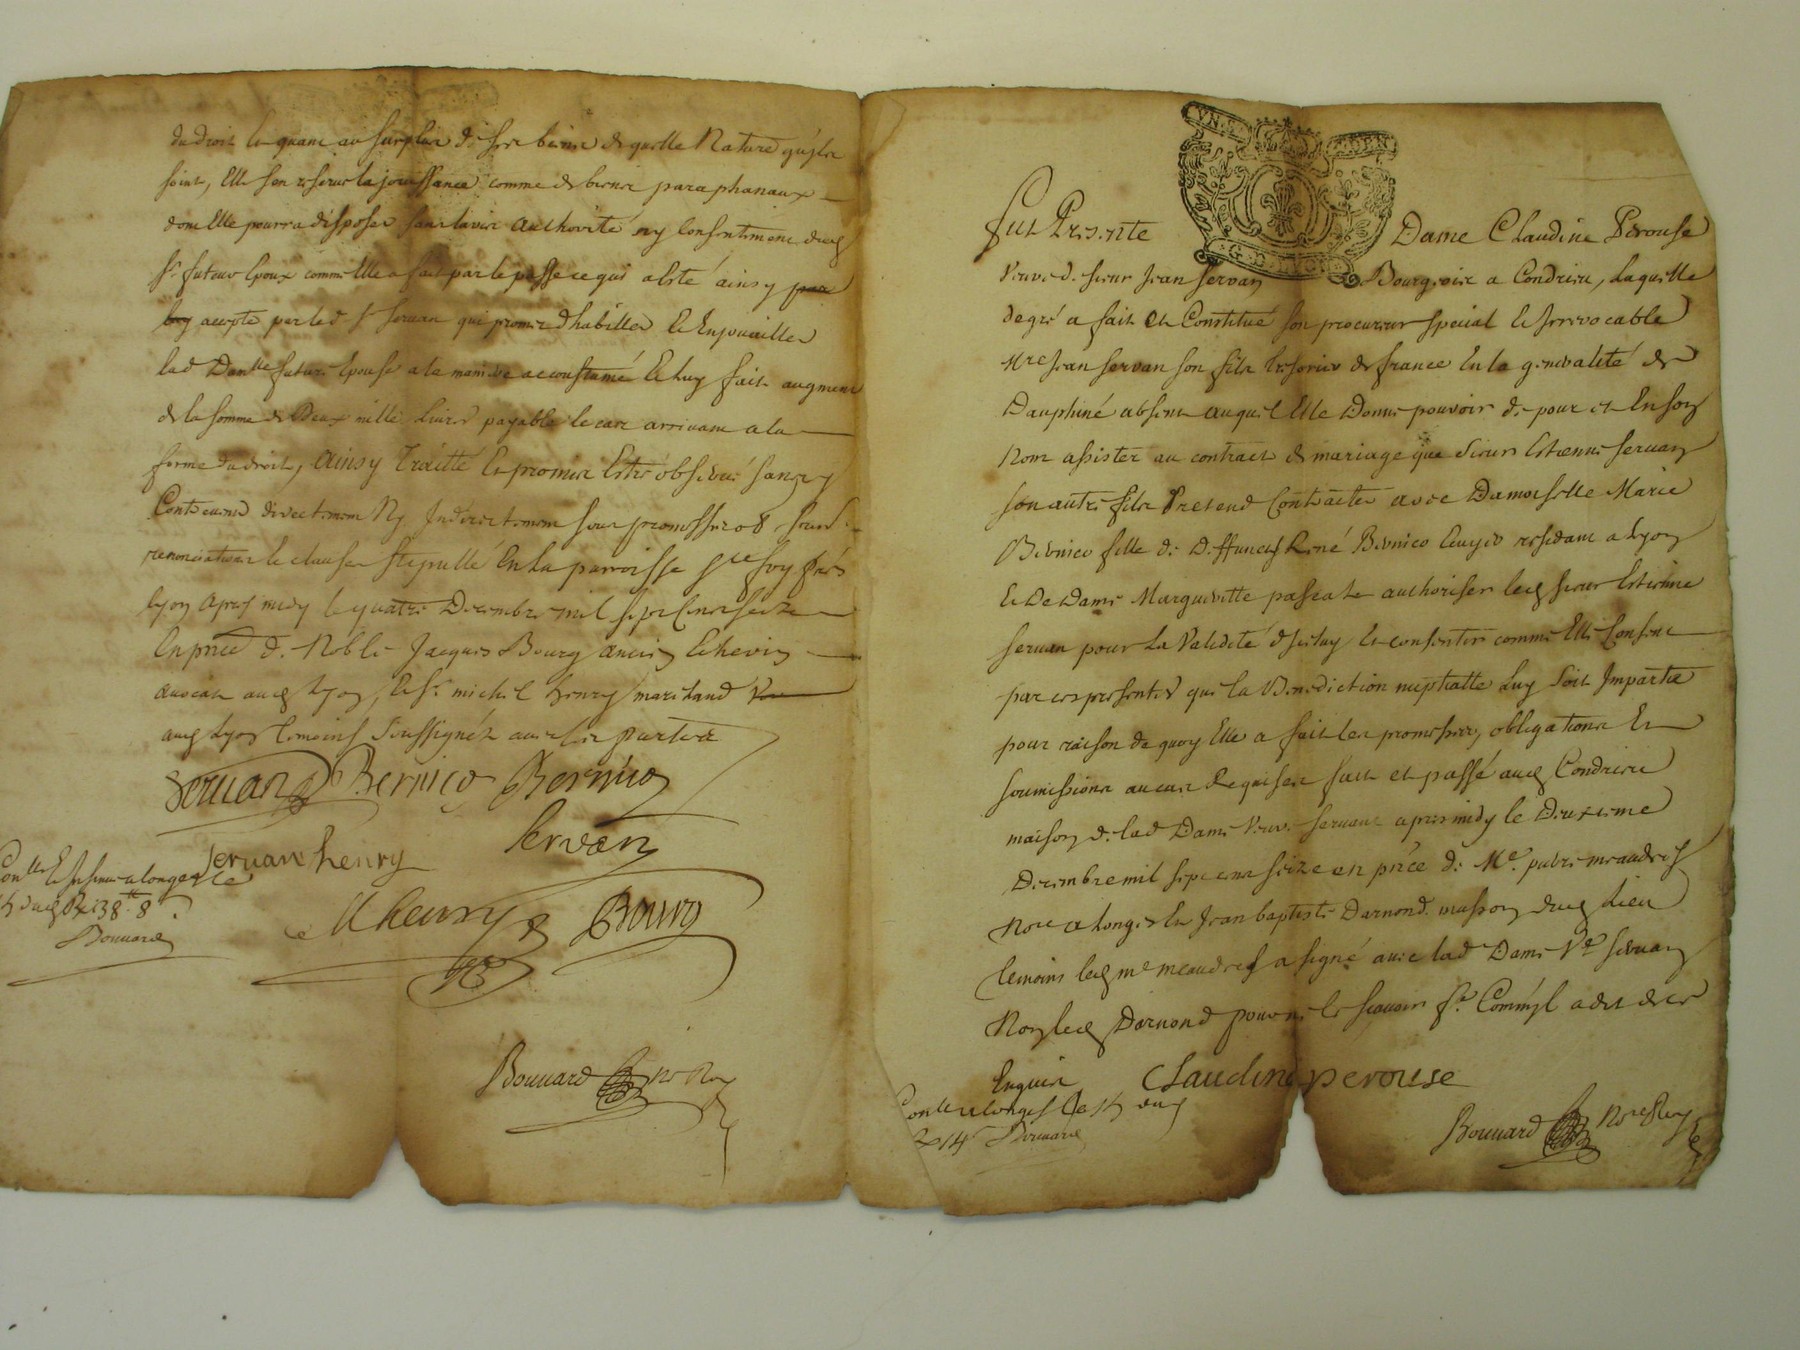 du droit Et quant au surplus de ses biens de quelle Nature quils
soint, Elle sen reserve la jouissance comme de biens paraphanaux
dont Elle pourra disposer sans lavis authorité ny Consentement dud
Sr. futeur Epoux comme Elle a fait par le passé ce qui a esté ainsy par
luy accepté par led Sr Servan qui promet dhabiller Et Enjouailler
lad Damlle future Epouse a la manière accoustumé Et luy fait augment
de la somme de Deux mille Livres payable le cas arrivant a la
forme du droit, Ainsy Traitté Et promis Estre observé sans y
Contrevenir directement Ny Indirectement sous promesses ob soub
renonciations Et clauses Stipullé En La parroisse Ste foy Prés
Lyon apres midy le quatre Decembre mil sept Cent seize
En pnce de Noble Jacques Bourg ancien Echevin
avocat aud Lyon, Et Sr. michel henry marchand
aud Lyon temoins Soussignéz avec les parties
Servan Bernico Bernico
Servan henry Servan
M henry Bourg
Conllé Et Insinué a longes Le
dud R 38 tt 8 s.
Bouuard
Bouuard No Roy
Fut Presente Dame Claudine Perouse
Veuve de sieur Jean Servan Bourgeois a Condrieu, Laquelle
de gré a fait Et Constitué son procureur special Et Irrevocable
Mre Jean Servan son fils tresorier de france En la generalité de
Dauphiné absent auquel Elle Donne pouvoir de pour et En son
Nom assister au contract de mariage que Sieur Estienne Servan
son autre fils Pretend Contracter avec Damoiselle Marie
Bernico fille de Deffunct René Bernico Ecuyer residant a Lyon
Et De Dame Margueritte pascal Et authoriser led sieur Estienne
Servan pour La Validité d'Iceluy Et consentir comme Elle Consent
par ces presentes que la Benediction nuptialle Luy Soit Impartie
pour raison de quoy Elle a fait les promesses, obligations Et
soumissions au cas Requises fait et passé aud Condrieu
maison de lad Dame Veuve Servant apres midy le Deuxieme
Decembre mil sept cent seize en pnce de Me. pierre meaudres
Nore a Longes Et Jean baptiste Darnond masson dud Lieu
temoins led me meaudres a signé avec lad Dame Ve Servan
Non led Darnond pour ne le scavoir fe. Comme Il a dit de ce
Enquis Claudine perouse
Conllé a longes Le dud
R 14 s Bouuard
Bouuard Nore Roy